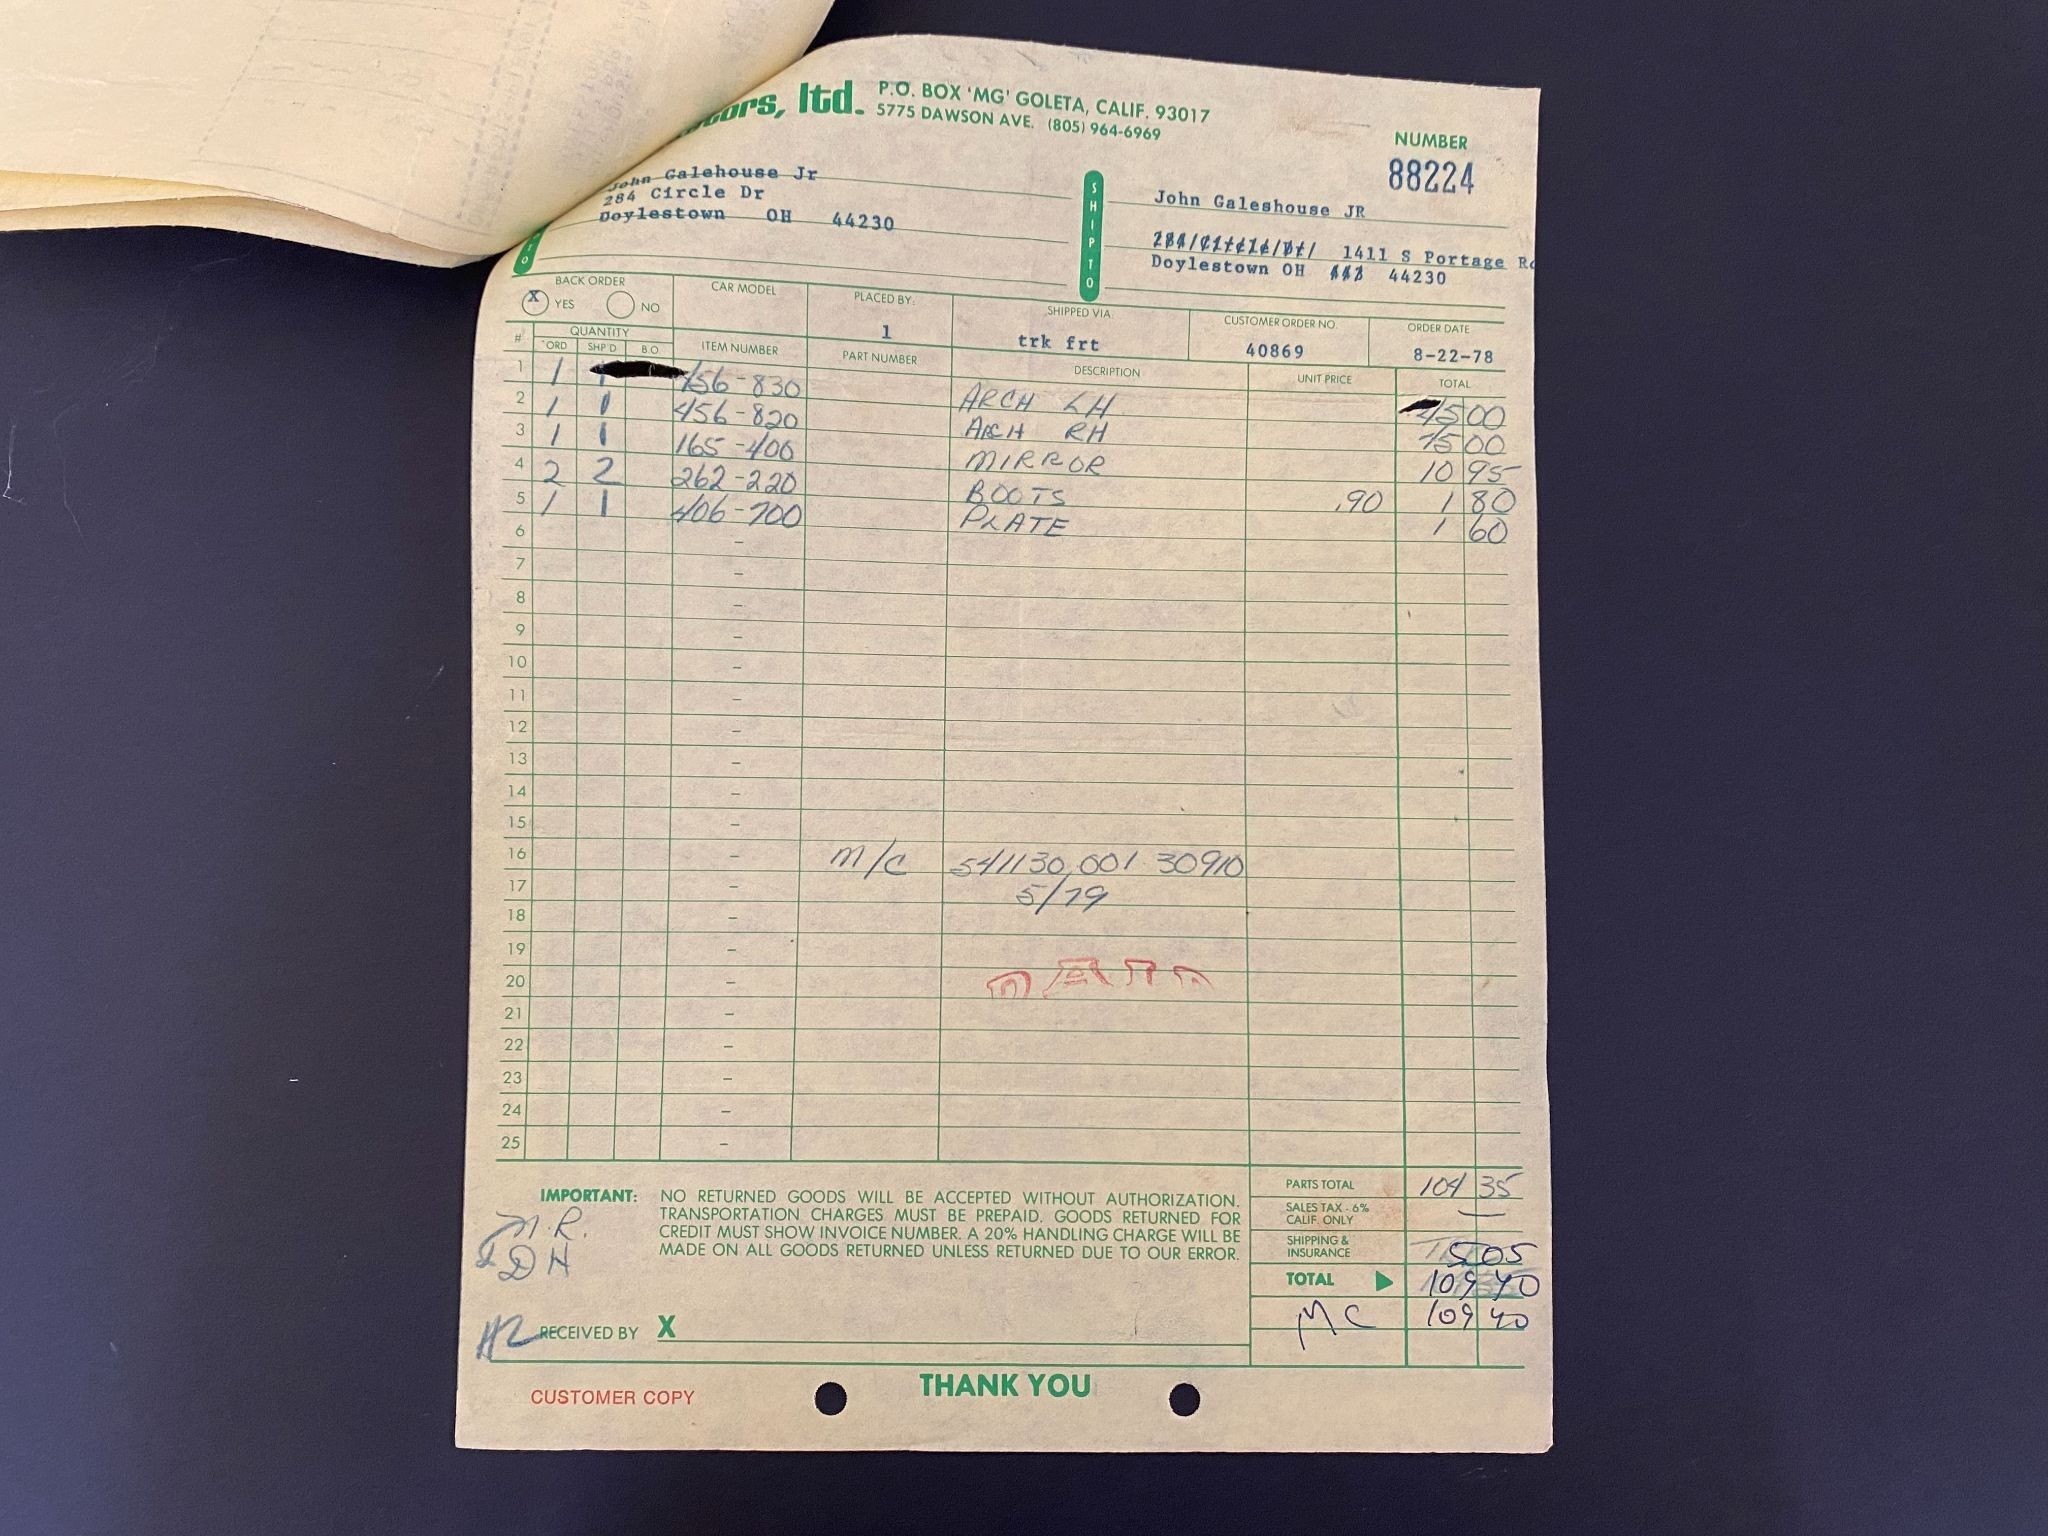 ltd.
P.O. BOX 'MG' GOLETA, CALIF. 93017
5775 DAWSON AVE. (805) 964-6969
NUMBER
88224
John Galehouse Jr
284 Circle Dr
Doylestown OH 44230
SHIP TO
John Galeshouse JR
1411 S Portage
Doylestown OH 44230
BACK ORDER
X YES NO
CAR MODEL
PLACED BY:
1
SHIPPED VIA
trk frt
CUSTOMER ORDER NO.
40869
ORDER DATE
8-22-78
# QUANTITY
ORD SHP'D B.O. ITEM NUMBER PART NUMBER DESCRIPTION UNIT PRICE TOTAL
1 1 456-830 ARCH LH 00
2 1 1 456-820 ARCH RH 00
3 1 1 165-400 MIRROR 10 95
4 2 2 262-220 BOOTS .90 1 80
5 1 1 406-700 PLATE 1 60
6 -
7 -
8 -
9 -
10 -
11 -
12 -
13 -
14 -
15 -
16 - M/C 541130 001 30910
17 - 5/79
18 -
19 -
20 -
21 -
22 -
23 -
24 -
25 -
IMPORTANT: NO RETURNED GOODS WILL BE ACCEPTED WITHOUT AUTHORIZATION.
TRANSPORTATION CHARGES MUST BE PREPAID. GOODS RETURNED FOR
CREDIT MUST SHOW INVOICE NUMBER. A 20% HANDLING CHARGE WILL BE
MADE ON ALL GOODS RETURNED UNLESS RETURNED DUE TO OUR ERROR.
PARTS TOTAL 104 35
SALES TAX - 6%
CALIF. ONLY —
SHIPPING &
INSURANCE 5 05
TOTAL 109 40
MC 109 40
RECEIVED BY X
THANK YOU
CUSTOMER COPY